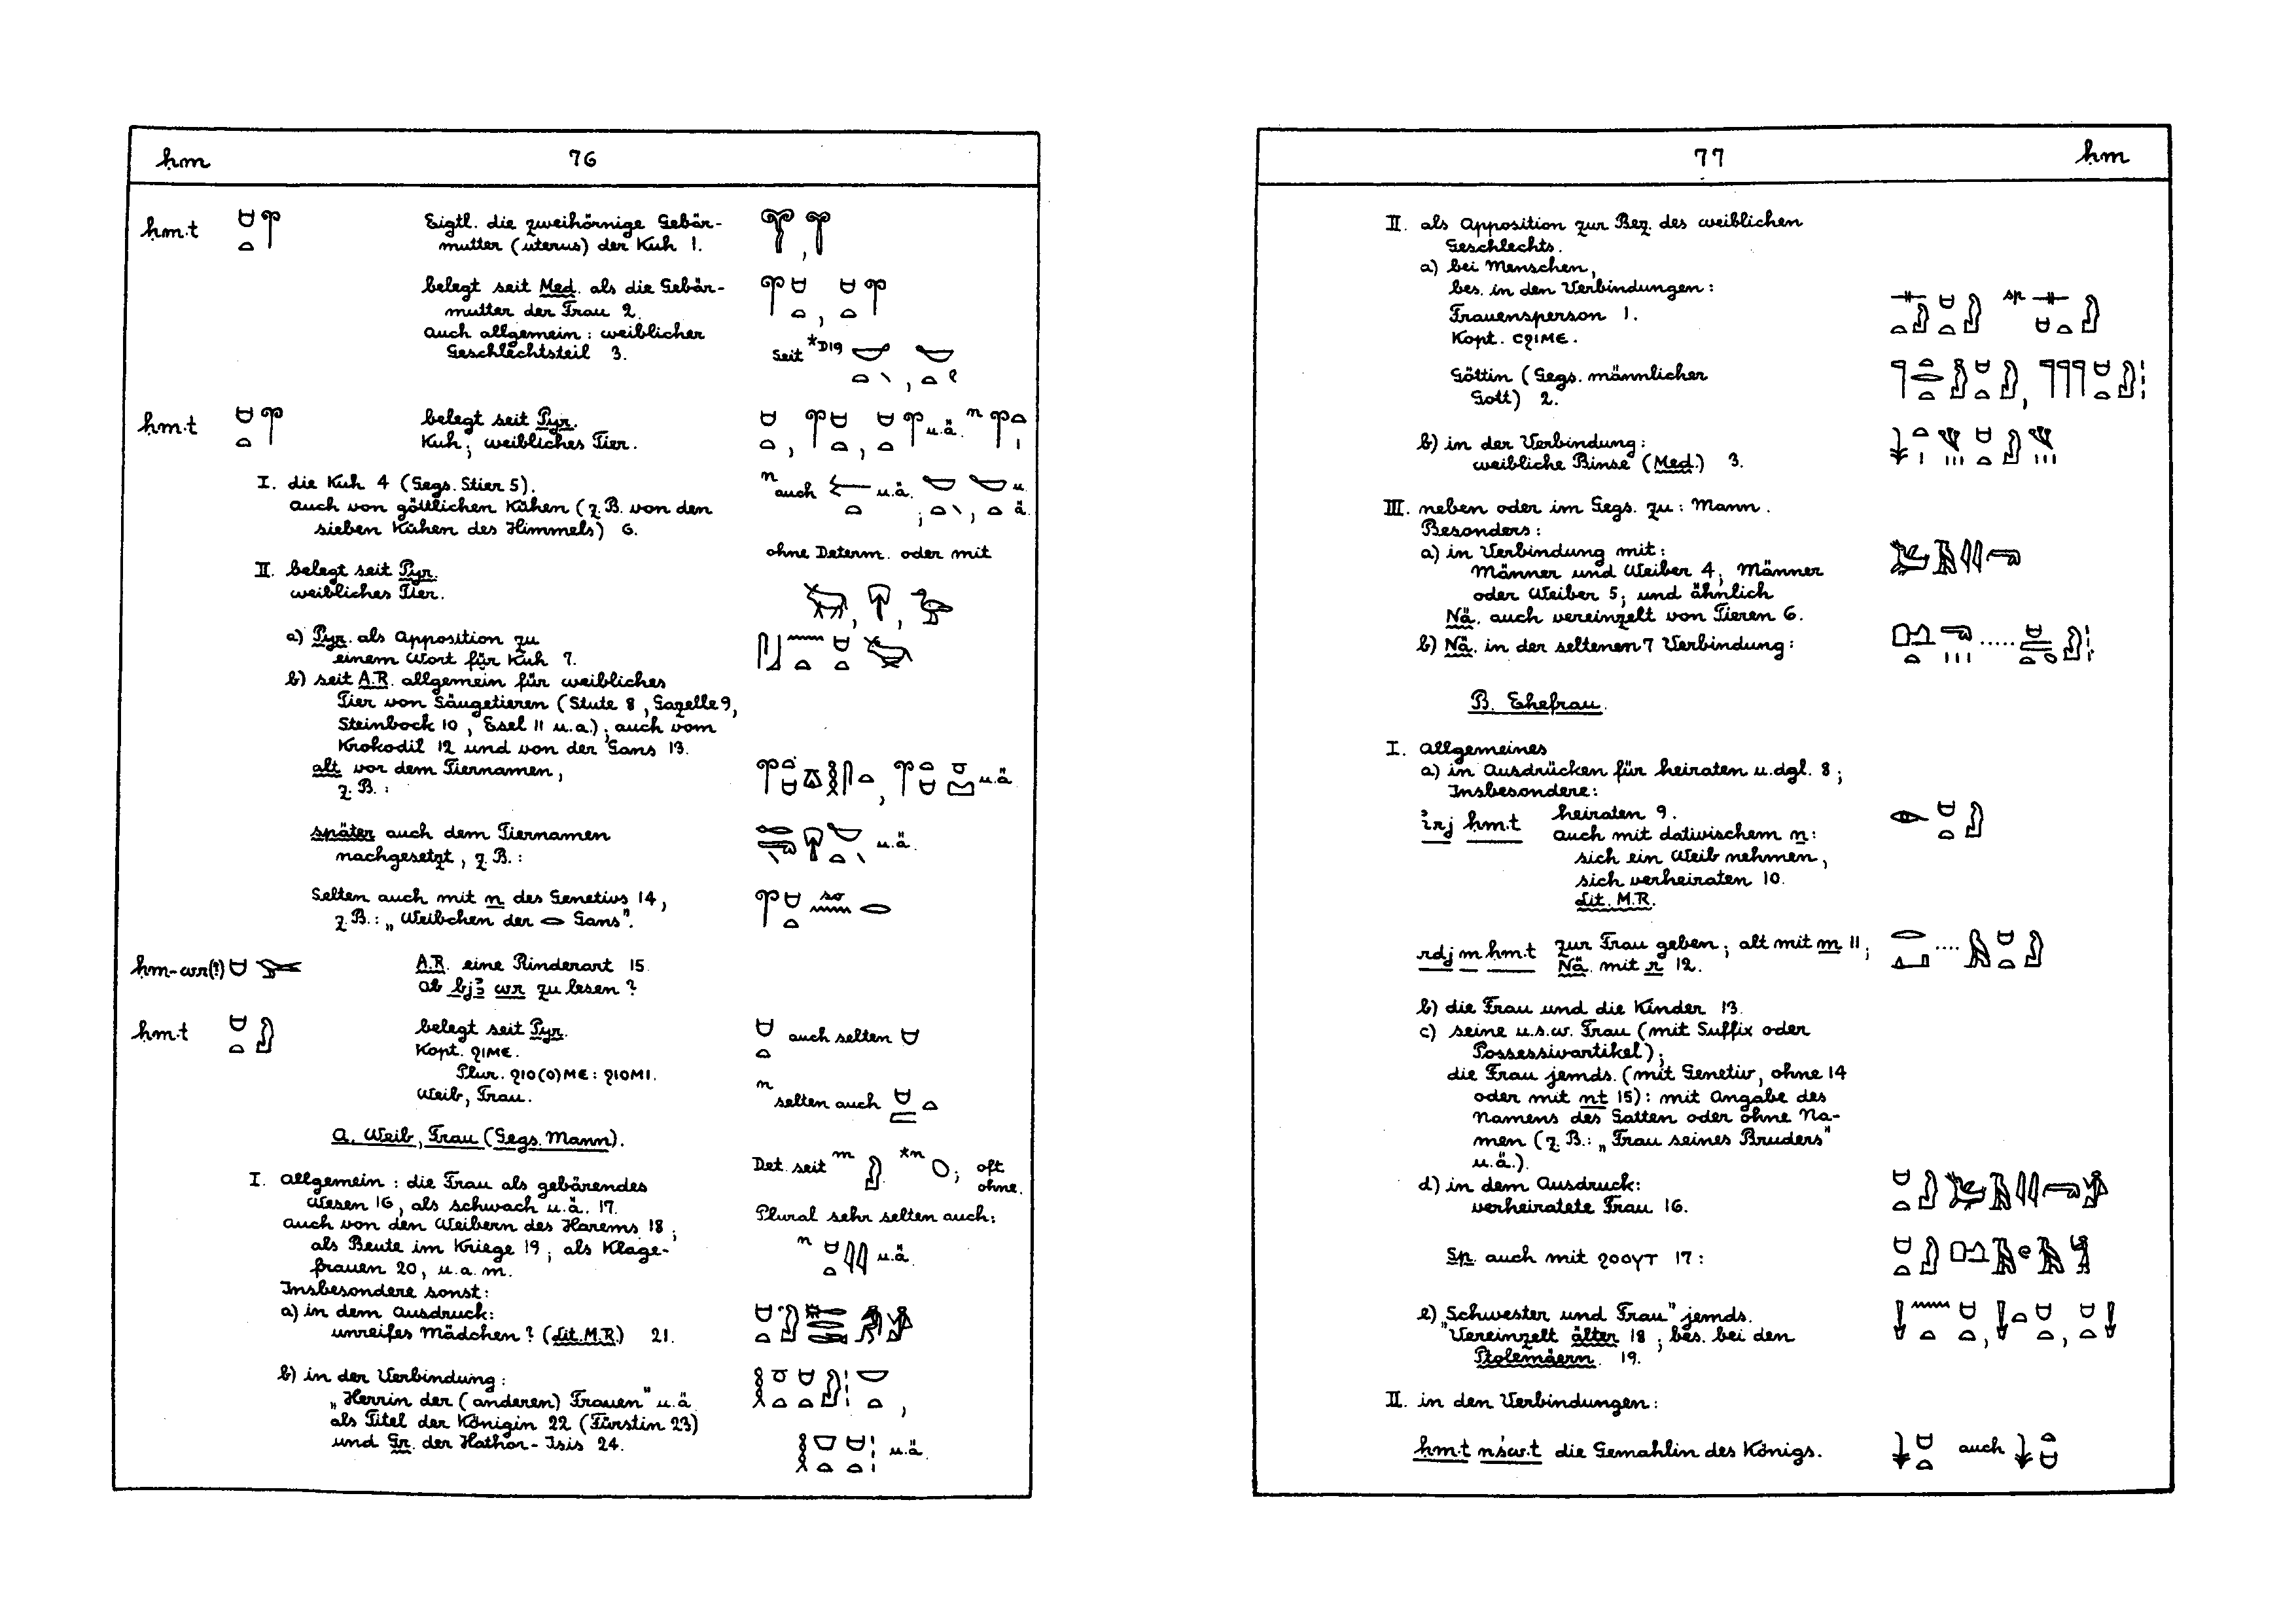 ḥm 76
ḥm.t Eigtl. die zweihörnige Gebär-
mutter (uterus) der Kuh 1.
belegt seit Med. als die Gebär-
mutter der Frau 2.
Auch allgemein: weiblicher
Geschlechtsteil 3.
seit *D19
ḥm.t belegt seit Pyr.
Kuh; weibliches Tier.
u.ä. n
I. die Kuh 4 (Gegs. Stier 5).
auch von göttlichen Kühen (z.B. von den
sieben Kühen des Himmels) 6.
n auch u.ä. u. ä.
ohne Determ. oder mit
II. belegt seit Pyr.
weibliches Tier.
a) Pyr. als Apposition zu
einem Wort für Kuh 7.
b) seit A.R. allgemein für weibliches
Tier von Säugetieren (Stute 8, Gazelle 9,
Steinbock 10, Esel 11 u.a.); auch vom
Krokodil 12 und von der Gans 13.
alt vor dem Tiernamen,
z.B.: u.ä.
später auch dem Tiernamen
nachgesetzt, z.B.: u.ä.
Selten auch mit n des Genetivs 14,
z.B.: „Weibchen der Gans". so
ḥm-wr(?) A.R. eine Rinderart 15.
ob bjꜣ wr zu lesen?
ḥm.t belegt seit Pyr.
Kopt. ϩIME.
Plur. ϩIO(O)ME: ϩIOMI.
Weib, Frau.
auch selten
n selten auch
A. Weib, Frau (Gegs. Mann).
Det. seit m *n ; oft
ohne.
I. Allgemein: die Frau als gebärendes
Wesen 16, als schwach u.ä. 17.
auch von den Weibern des Harems 18;
als Beute im Kriege 19; als Klage-
frauen 20, u.a.m.
Plural sehr selten auch:
n u.ä.
Insbesondere sonst:
a) in dem Ausdruck:
unreifes Mädchen? (Lit. M.R.) 21.
b) in der Verbindung:
„Herrin der (anderen) Frauen" u.ä.
als Titel der Königin 22 (Fürstin 23)
und Gr. der Hathor-Isis 24. u.ä.
77 ḥm
II. als Apposition zur Bez. des weiblichen
Geschlechts.
a) bei Menschen,
bes. in den Verbindungen:
Frauensperson 1. sp
Kopt. CϩIME.
Göttin (Gegs. männlicher
Gott) 2.
b) in der Verbindung:
weibliche Binse (Med.) 3.
III. neben oder im Gegs. zu: Mann.
Besonders:
a) in Verbindung mit:
Männer und Weiber 4; Männer
oder Weiber 5; und ähnlich
Nä. auch vereinzelt von Tieren 6.
b) Nä. in der seltenen 7 Verbindung: .....
B. Ehefrau.
I. Allgemeines
a) in Ausdrücken für heiraten u.dgl. 8;
Insbesondere:
irj ḥm.t heiraten 9.
auch mit dativischem n:
sich ein Weib nehmen,
sich verheiraten 10.
Lit. M.R.
rdj m ḥm.t zur Frau geben; alt mit m 11; ....
Nä. mit r 12.
b) die Frau und die Kinder 13.
c) seine u.s.w. Frau (mit Suffix oder
Possessivartikel);
die Frau jemds. (mit Genetiv, ohne 14
oder mit nt 15): mit Angabe des
Namens des Gatten oder ohne Na-
men (z.B.: „Frau seines Bruders"
u.ä.).
d) in dem Ausdruck:
verheiratete Frau 16.
Sp. auch mit ϩOOYT 17:
e) „Schwester und Frau" jemds.
Vereinzelt älter 18; bes. bei den
Ptolemäern. 19.
II. in den Verbindungen:
ḥm.t nśw.t die Gemahlin des Königs. auch